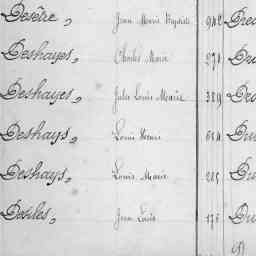 Desère, Jean Marie Baptiste 942 Dre
Deshayes, Charles Marie 271
Deshayes, Jules Louis Marie 389
Deshays, Louis 654
Deshays, Louis Marie 285
Desles, Jean Louis 175